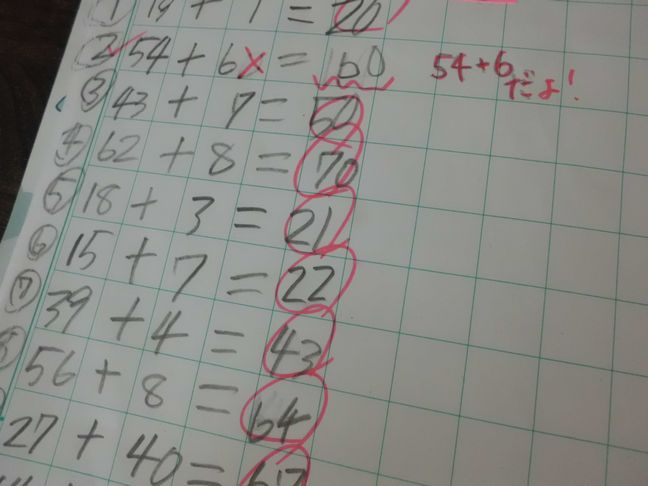 ① 19 + 1 = 20
② 54 + 6x = 60 54+6だよ!
③ 43 + 7 = 50
④ 62 + 8 = 70
⑤ 18 + 3 = 21
⑥ 15 + 7 = 22
⑦ 39 + 4 = 43
⑧ 56 + 8 = 64
27 + 40 = 67